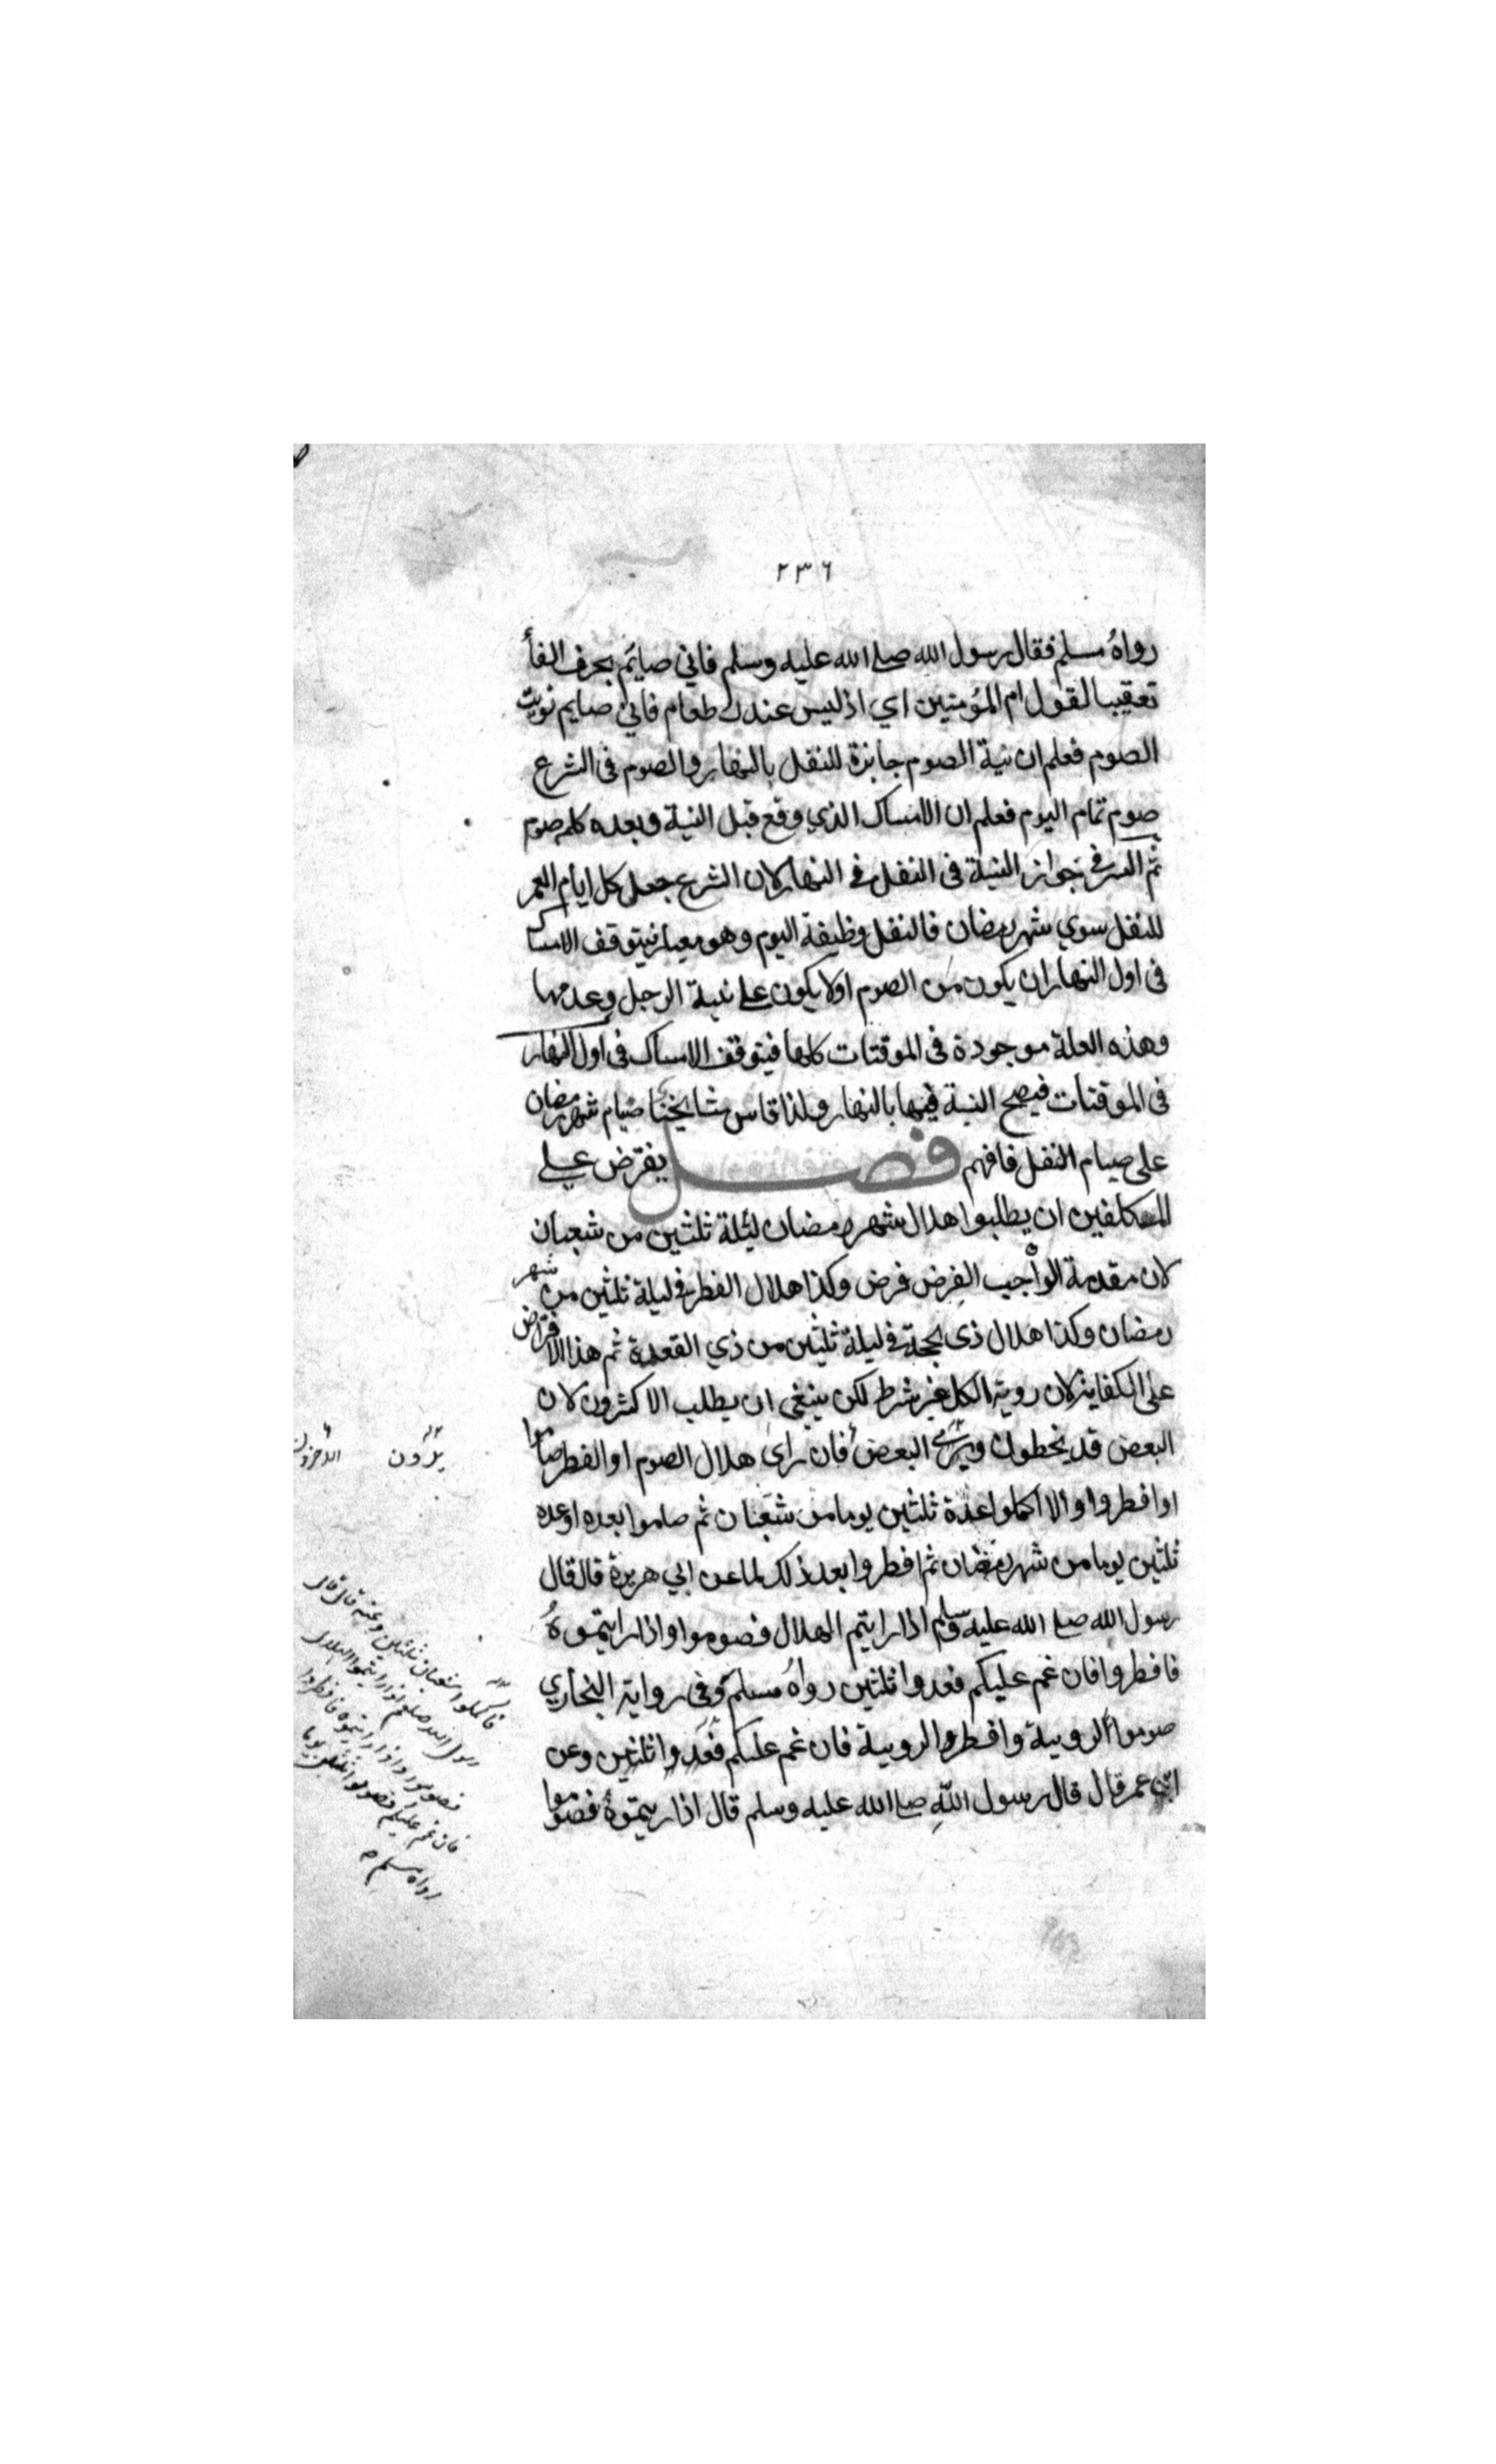 ٢٣٦
رواهُ مسلم فقال رسول الله صلے الله عليه وسلم فاني صائم بحرف الفأ
تعقيبا لقول ام المؤمنين اي اذ ليس عندك طعام فاني صايم نويت
الصوم فعلم ان نية الصوم جايزة للنفل بالنهار والصوم فى الشرع
صوم تمام اليوم فعلم ان الامساك الذي وقع قبل النية وبعده كلہ صوم
ثم السر فے جواز النية فى النفل فے النهار لان الشرع جعل كل ايام العمر
للنفل سوي شهر رمضان فالنفل وظيفة اليوم وهو معيار فيتوقف الامساك
فى اول النهار ان يكون من الصوم او لا يكون علے نية الرجل وعدمها
وهذه العلة موجودة فى الموقتات كلها فيتوقف الامساك فى اول النهار
فى الموقتات فيصح النية فيها بالنهار ولذا قاس مشايخنا صيام شهر رمضان
على صيام النفل فافهم فصل يفترض علے
المكلفين ان يطلبوا هلال شهر رمضان ليلة ثلثين من شعبان
لان مقدمة الواجب الفرض فرض وكذا هلال الفطر فے ليلة ثلثين من شهر
رمضان وكذا هلال ذى الحجة فے ليلة ثلثين من ذي القعدة ثم هذا الافتراض
على الكفاية لان روية الكل غير شرط لكن ينبغى ان يطلب الاكثرون لان
البعض قد يخطون ويرى البعض فان راى هلال الصوم او الفطر صاموا
او افطروا والا اكملوا عدة ثلثين يوما من شعبان ثم صاموا بعده او عده
ثلثين يوما من شهر رمضان ثم افطروا بعد ذلك لما عن ابي هريرة قال قال
رسول الله صلے الله عليه وسلم اذا رايتم الهلال فصوموا واذا رايتموهُ
فافطروا فان غم عليكم فعدوا ثلثين رواهُ مسلم وفى رواية البخاري
صوموا لروية وافطروا لروية فان غم عليكم فعدوا ثلثين وعن
ابن عمر قال قال رسول اللهِ صلے الله عليه وسلم قال اذا رايتموهُ فصوموا
يرون
الاخرون
فاكملوا شعبان ثلثين وعنه قال قال
رسول الله صلعم اذا رايتموا الهلال
فصوموا واذا رايتموه فافطروا
فان غم عليكم فصوموا ثلثين يوما
رواه مسلم